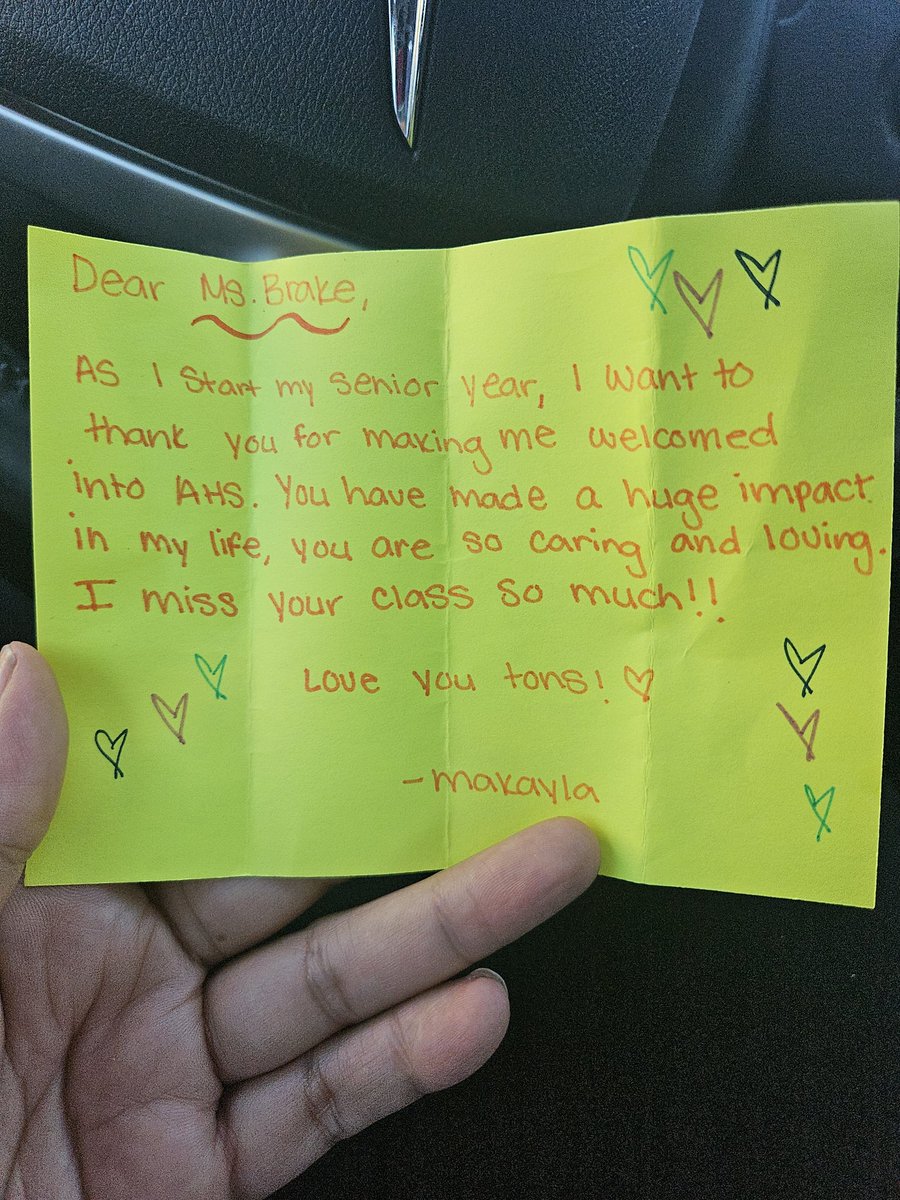 Dear Ms. Brake,
As I start my senior year, I want to
thank you for making me welcomed
into AHS. You have made a huge impact
in my life, you are so caring and loving.
I miss your class so much!!
Love you tons! ♡
-makayla